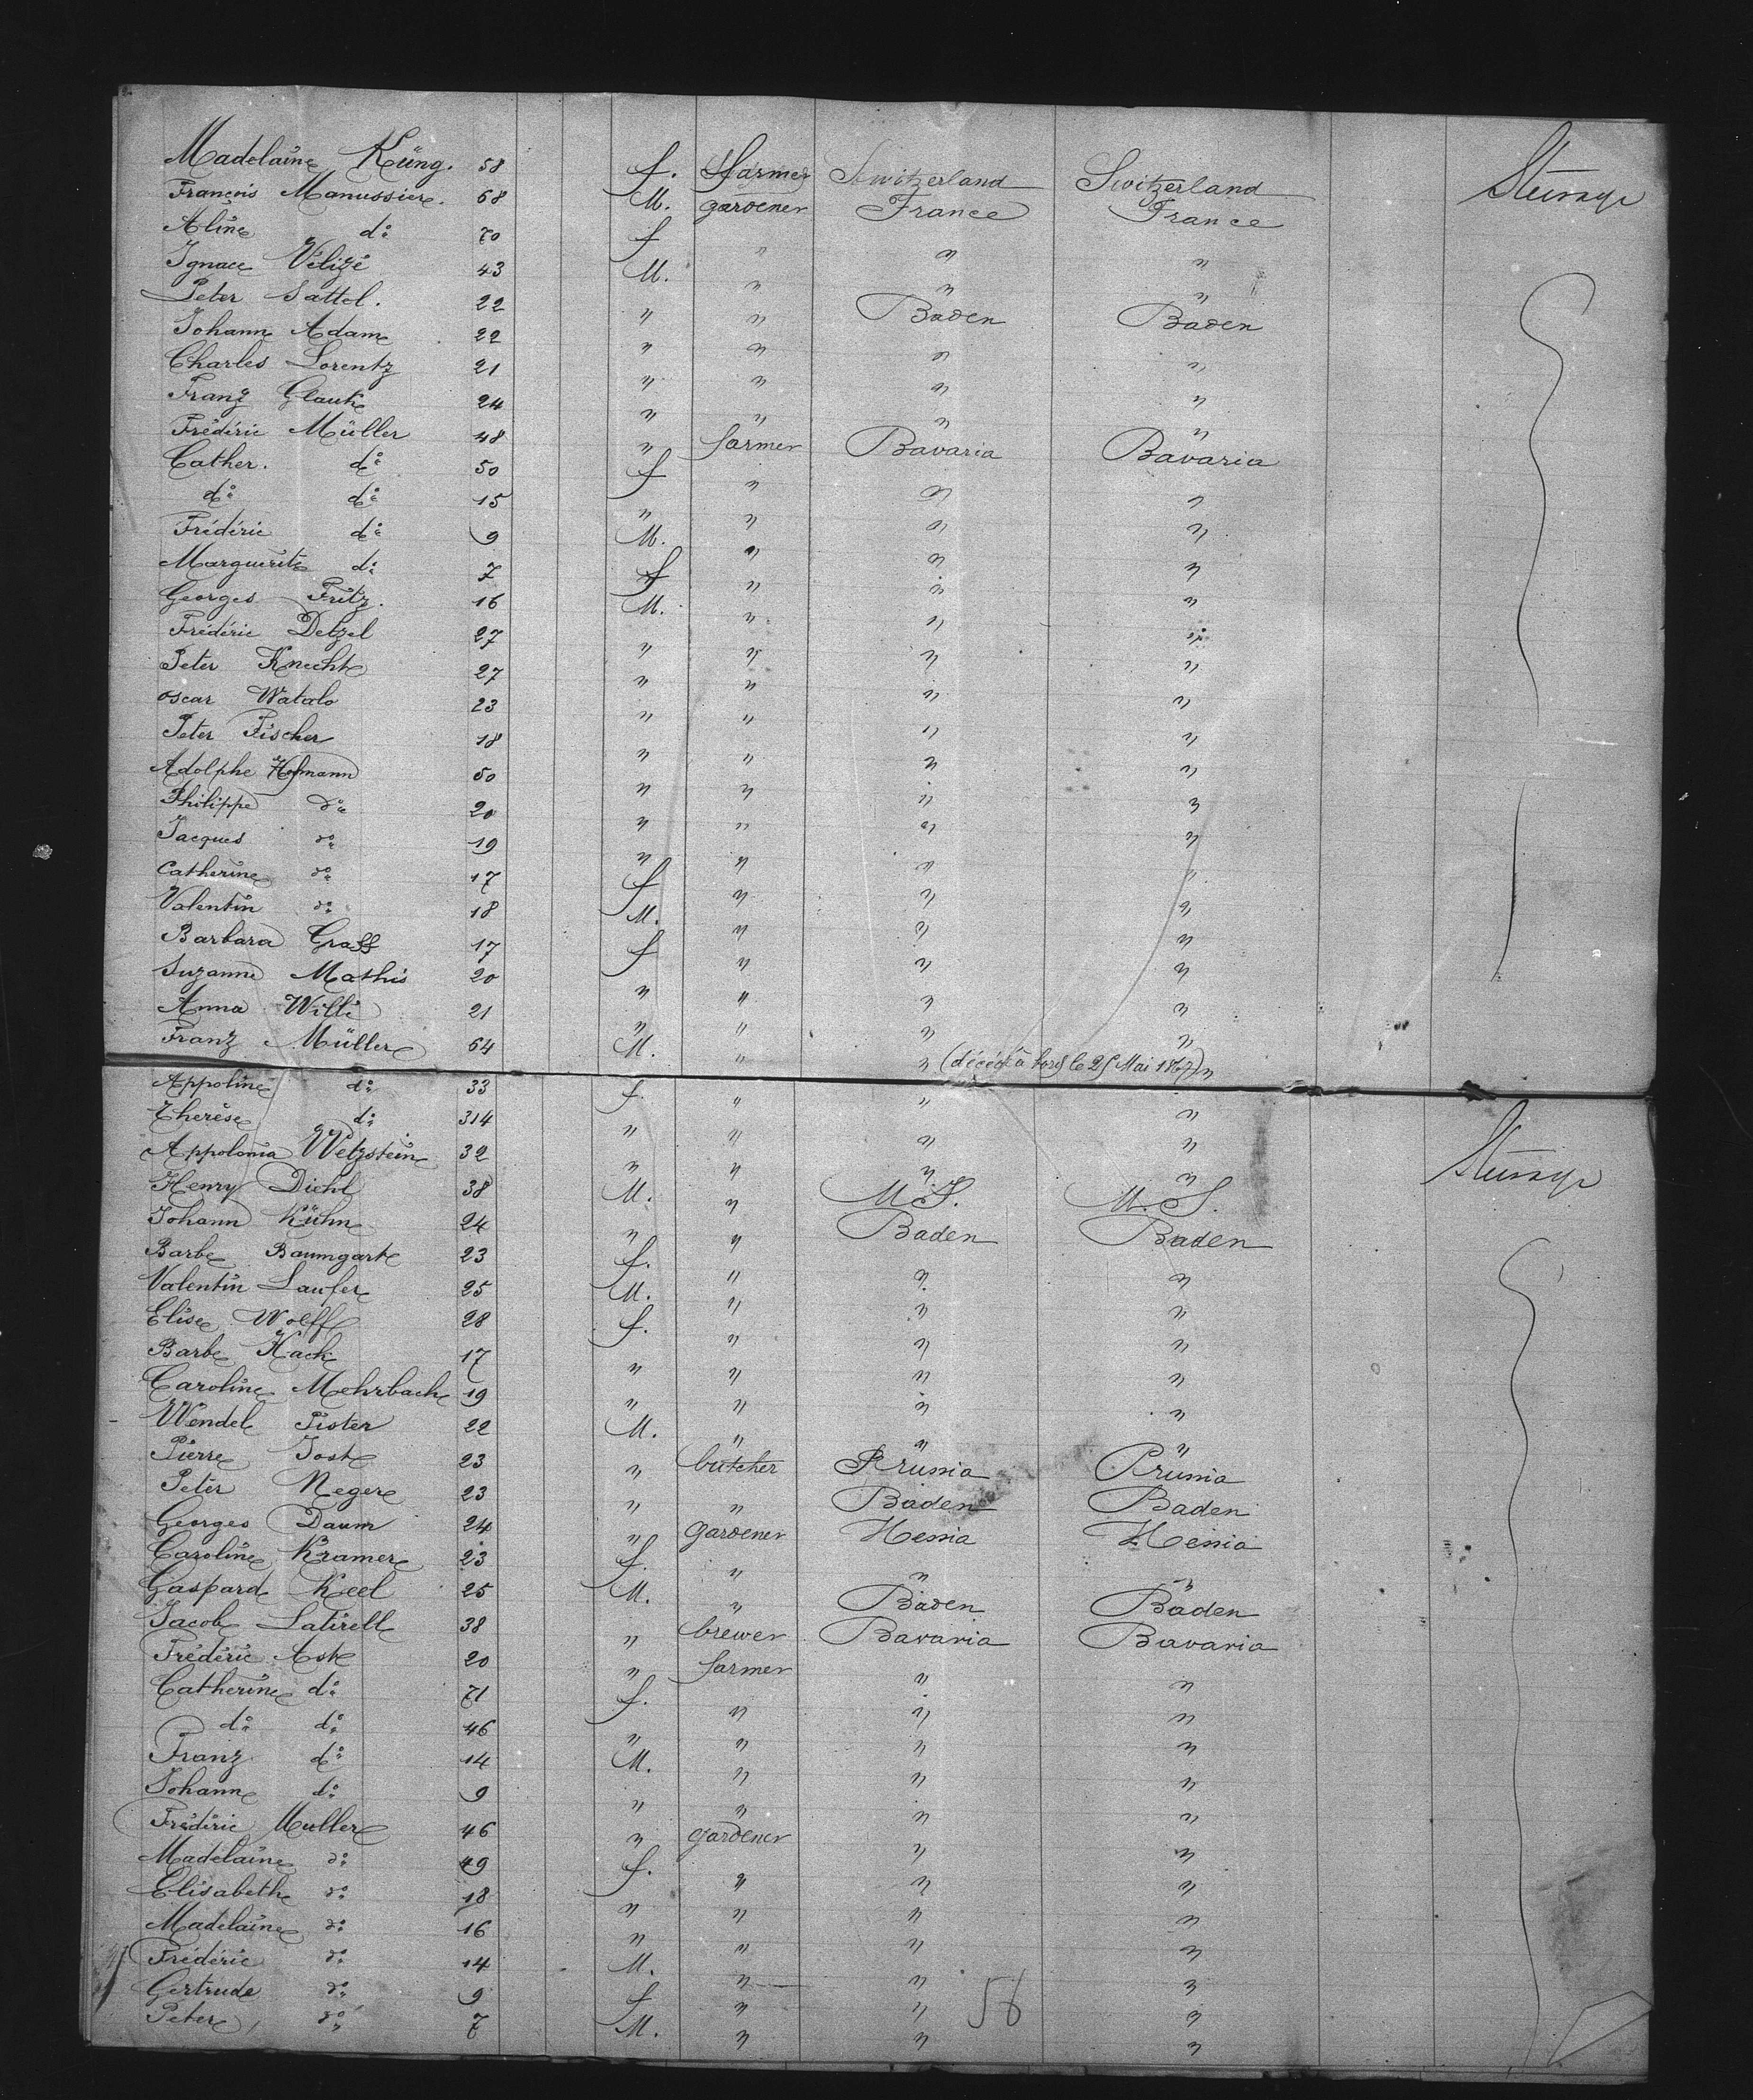 Madelaine Küng. 58 f. farmer Switzerland Switzerland Steerage
François Manussier. 68 M. gardener France France
Aline dº 70 f " " "
Ignace Vélizé 43 M. " " "
Peter Sattel. 22 " " Baden Baden
Johann Adam 22 " " " "
Charles Lorentz 21 " " " "
Franz Glauk 24 " " " "
Frédéric Müller 48 " farmer Bavaria Bavaria
Cather. dº 50 f " " "
dº dº 15 " " " "
Frédéric dº 9 M. " " "
Marguerite dº 7 f " " "
Georges Fritz. 16 M. " " "
Frédéric Detzel 27 " " " "
Peter Knecht 27 " " " "
Oscar Watalo 23 " " " "
Peter Fischer 18 " " " "
Adolphe Hofmann 50 " " " "
Philippe dº 20 " " " "
Jacques dº 19 " " " "
Catherine dº 17 f " " "
Valentin dº 18 M. " " "
Barbara Graff 17 f " " "
Suzanne Mathis 20 " " " "
Anna Willi 21 " " " "
Franz Müller 64 M. " " (décédé à bord le 25 Mai 1867) "
Appoline dº 33 f. " " "
Therèse dº 314 " " " "
Appolonia Wetzstein 32 " " " " Steerage
Henry Diehl 38 M. " U.S. U.S.
Johann Kühn 24 " " Baden Baden
Barbe Baumgart 23 f. " " "
Valentin Laufer 25 M. " " "
Elise Wolff 28 f. " " "
Barbe Hack 17 " " " "
Caroline Mehrbach 19 " " " "
Wendel Pister 22 M. " " "
Pierre Jost 23 " butcher Prussia Prussia
Peter Neger 23 " " Baden Baden
Georges Daum 24 " gardener Hessia Hessia
Caroline Kramer 23 f. " " "
Gaspard Keel 25 M. " Baden Baden
Jacob Latirell 38 " brewer Bavaria Bavaria
Frédéric Ast 20 " farmer " "
Catherine dº 71 f. " " "
dº dº 46 " " " "
Franz dº 14 M. " " "
Johann dº 9 " " " "
Frédéric Muller 46 " gardener " "
Madelaine dº 49 f. " " "
Elisabeth dº 18 " " " "
Madelaine dº 16 " " " "
Frédéric dº 14 M. " " "
Gertrude dº 9 f " " "
Peter dº 7 M. " " "
56